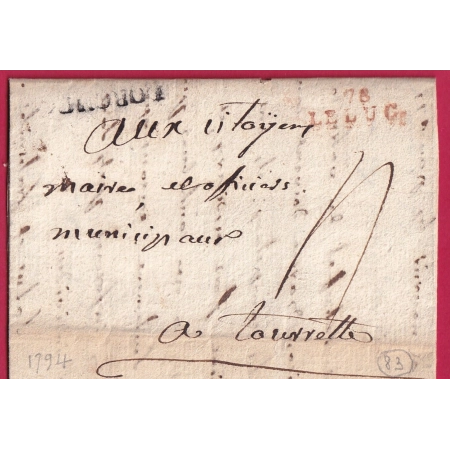 78
LE LUC
aux citoyens
maire et officiers
municipaux
a tourrette
1794
83